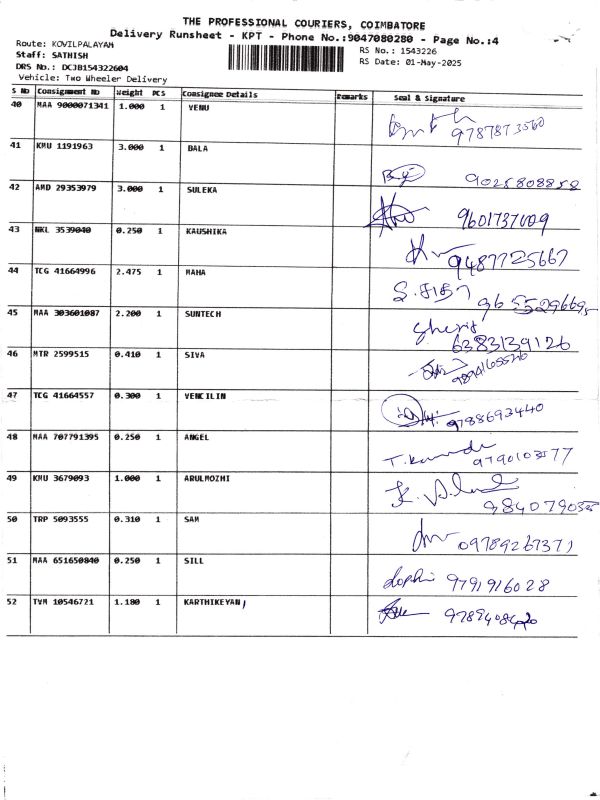 THE PROFESSIONAL COURIERS, COIMBATORE
Delivery Runsheet - KPT - Phone No.:9047080280 - Page No.:4
Route: KOVILPALAYAM
Staff: SATHISH
DRS No.: DCJB154322604
Vehicle: Two Wheeler Delivery
RS No.: 1543226
RS Date: 01-May-2025
S No Consignment No Weight PCS Consignee Details Remarks Seal & Signature
40 MAA 9000071341 1.000 1 VENU 9787873560
41 KMU 1191963 3.000 1 BALA 9025808858
42 AMD 29353979 3.000 1 SULEKA 9601737009
43 NKL 3539040 0.250 1 KAUSHIKA 9487725667
44 TCG 41664996 2.475 1 MAHA 9655296695
45 MAA 303601087 2.200 1 SUNTECH 6383139126
46 MTR 2599515 0.410 1 SIVA 9894165526
47 TCG 41664557 0.300 1 VENCILIN 9788693440
48 MAA 707791395 0.250 1 ANGEL 9790103577
49 KMU 3679093 1.000 1 ARULMOZHI
50 TRP 5093555 0.310 1 SAM 09789267371
51 MAA 651650840 0.250 1 SILL 9791916028
52 TVM 10546721 1.180 1 KARTHIKEYAN,